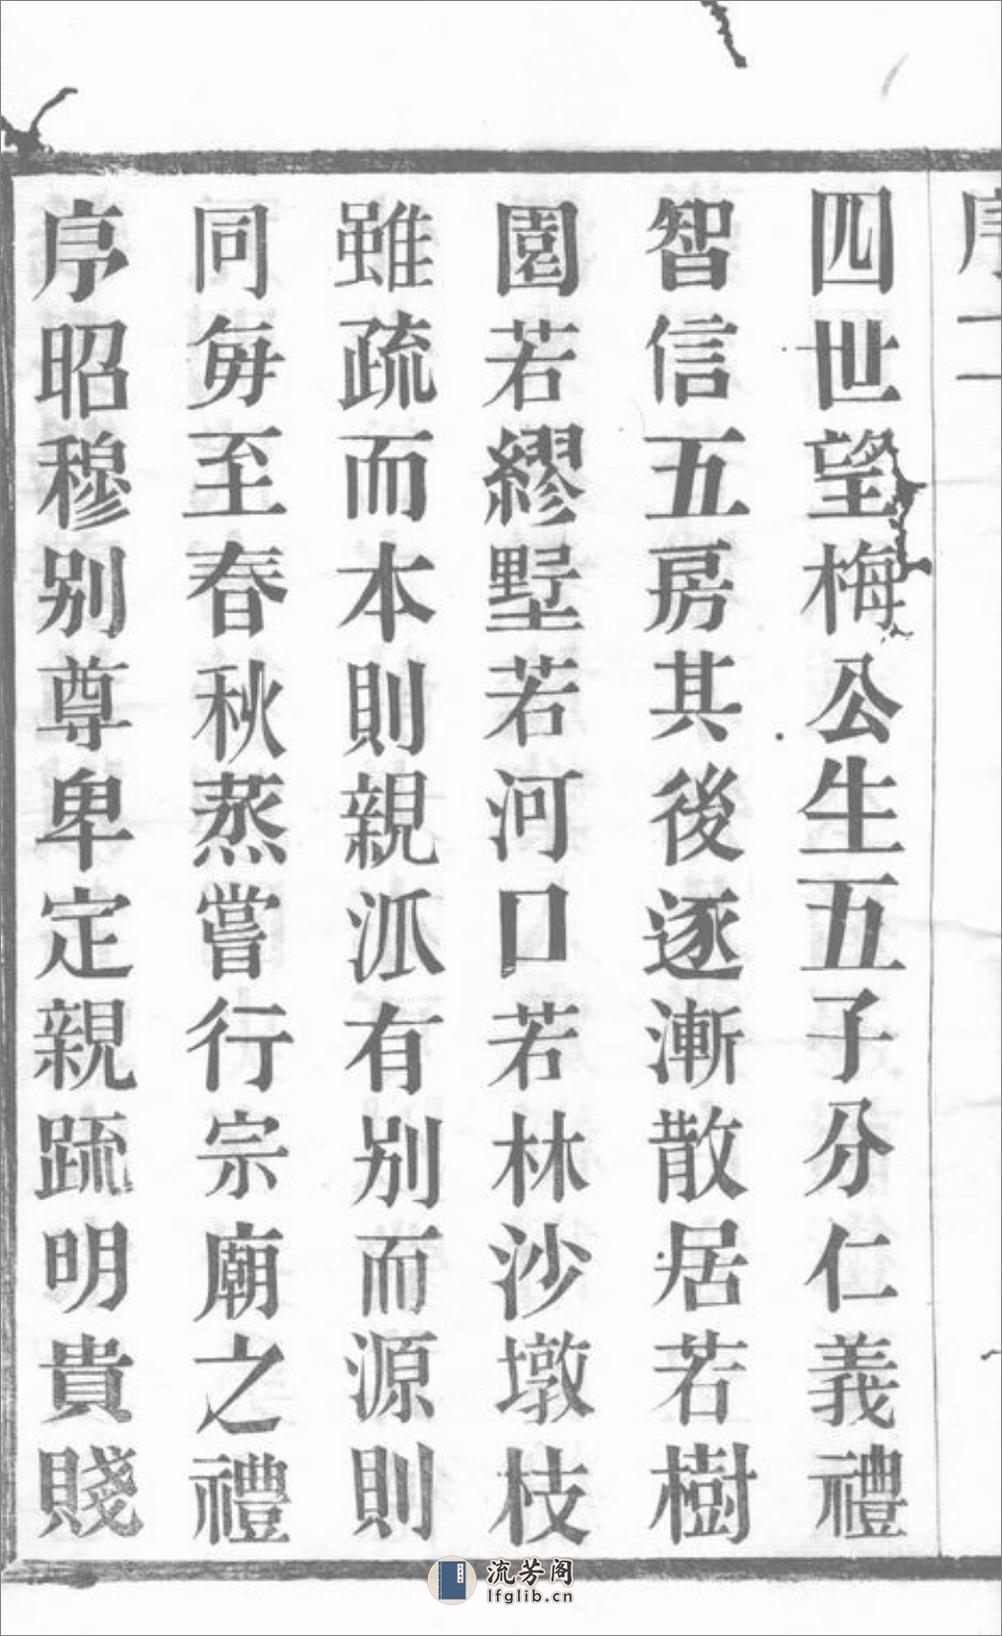 序二
四世望梅公生五子分仁義禮
智信五房其後逐漸散居若樹
園若繆墅若河口若林沙墩枝
雖疏而本則親派有别而源則
同每至春秋蒸嘗行宗廟之禮
序昭穆别尊卑定親疏明貴賤
流芳阁
lfglib.cn